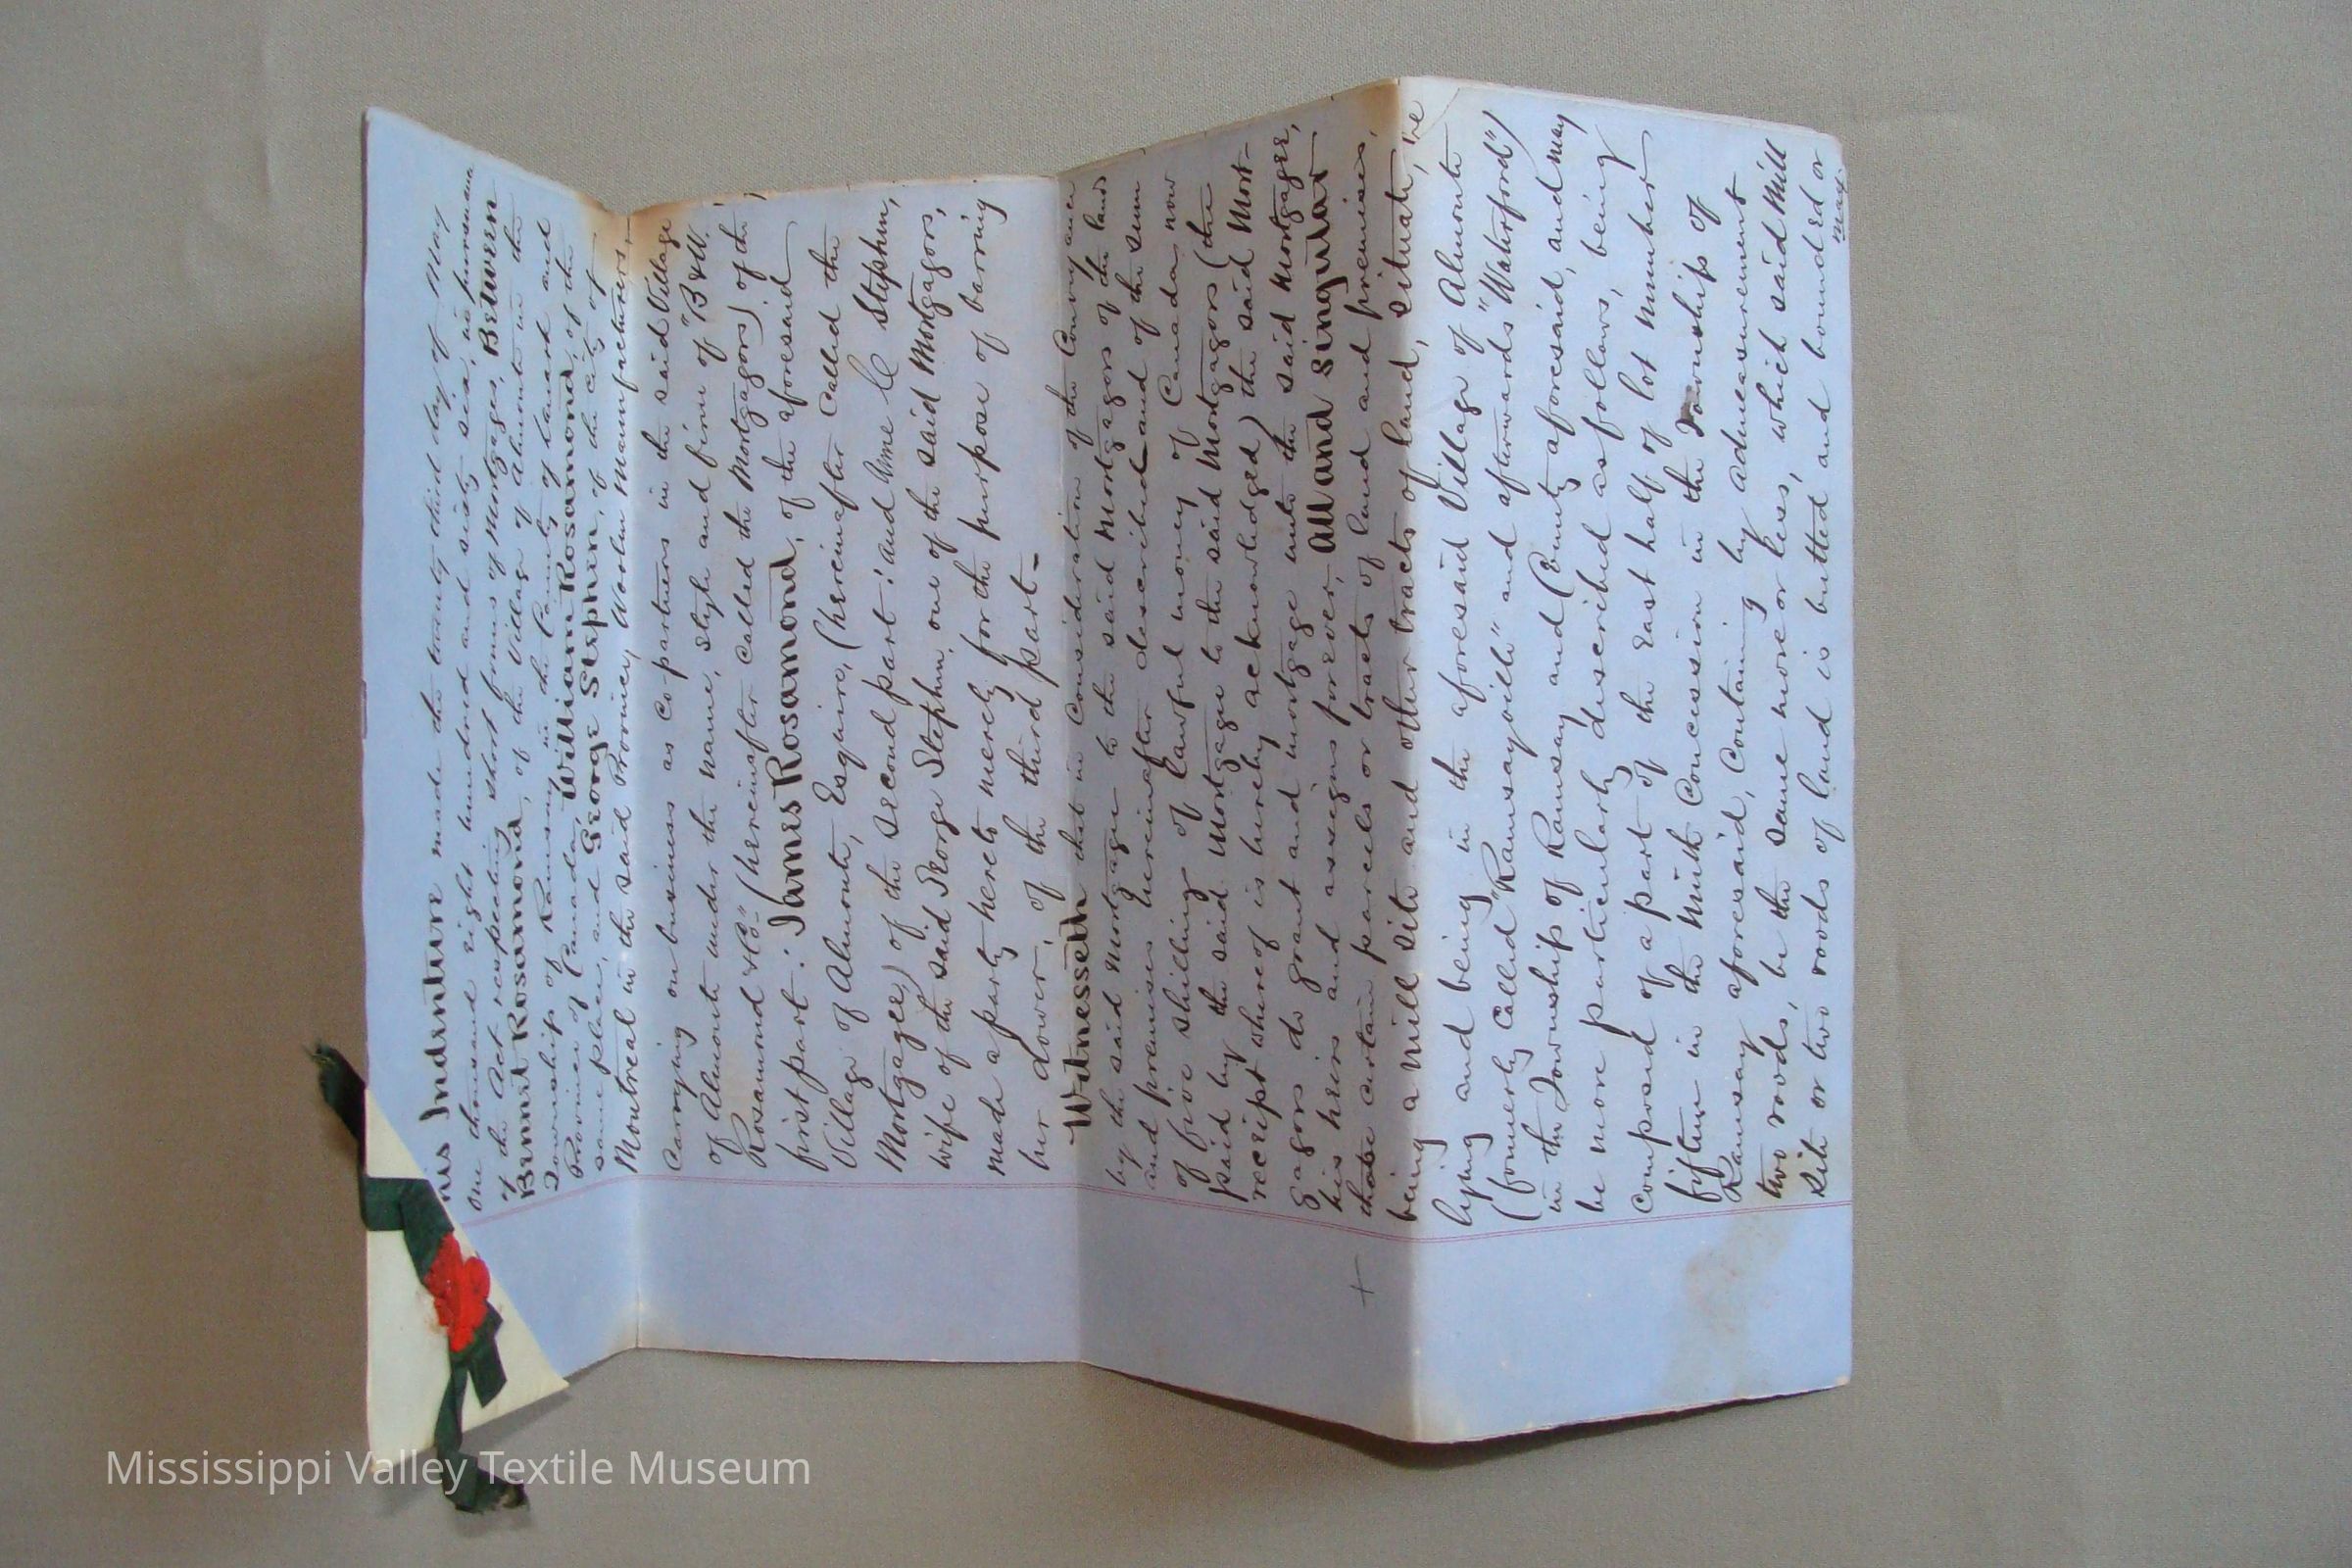 his Indenture made the twenty third day of May
one thousand eight hundred and sixty six, in pursuance
of the Act respecting short forms of Mortgages, Between
Bennet Rosamond, of the Village of Almonte in the
Township of Ramsay in the County of Lanark and
Province of Canada, William Rosamond, of the
same place, and George Stephen, of the City of
Montreal in the said Province, Woolen Manufacturers,
Carrying on business as Co-partners in the said Village
of Almonte under the name, style and firm of "B & W.
Rosamond & Co." (hereinafter called the Mortgagors) of the
first part: James Rosamond, of the aforesaid
Village of Almonte, Esquire, (hereinafter called the
Mortgagee) of the second part: and Anne C Stephen,
wife of the said George Stephen, one of the said Mortgagors,
made a party hereto merely for the purpose of barring
her dower, of the third part-
Witnesseth that in Consideration of the Conveyance
by the said Mortgagee to the said Mortgagors of the land
and premises hereinafter described and of the sum
of five shillings of lawful money of Canada now
paid by the said Mortgagee to the said Mortgagors (the
receipt whereof is hereby acknowledged) the said Mort-
gagors do grant and mortgage unto the said Mortgagee,
his heirs and assigns forever, All and Singular
those certain parcels or tracts of land and premises,
being a Mill site and other tracts of land, situate,
lying and being in the aforesaid Village of Almonte
(formerly Called "Ramsayville" and afterwards "Waterford")
in the Township of Ramsay and County aforesaid, and may
be more particularly described as follows, being
Composed of a part of the East half of lot number
fifteen in the Ninth Concession in the Township of
Ramsay aforesaid, Containing by admeasurement
two roods, be the same more or less, which said Mill
Site or two roods of land is butted and bounded or
may
Mississippi Valley Textile Museum